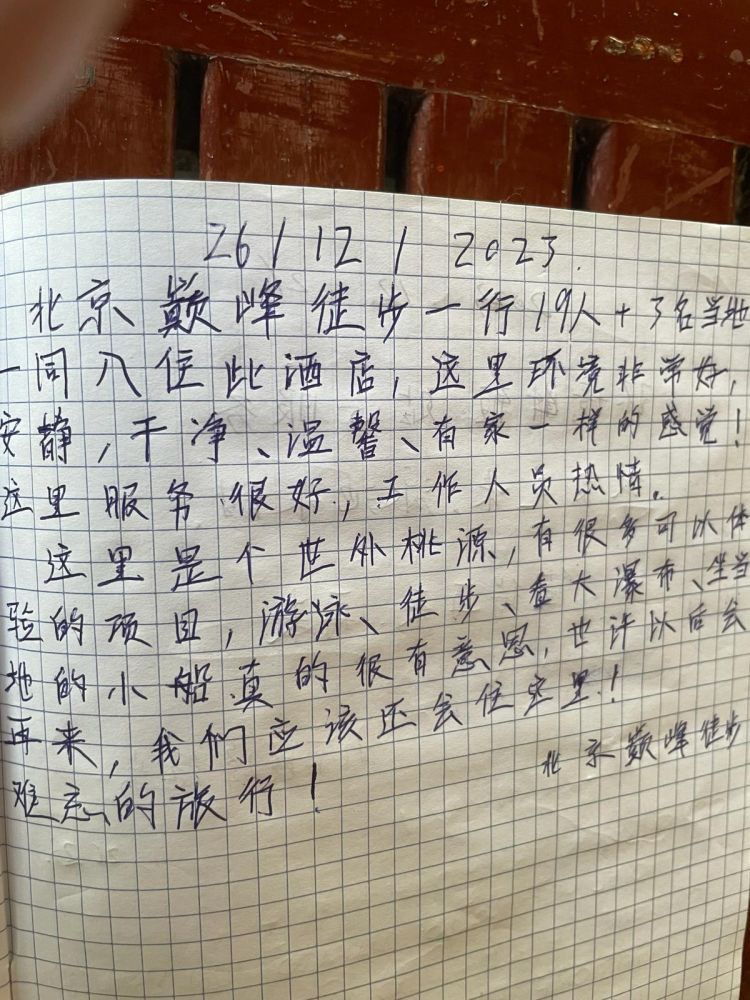 26/12/2023.
北京巅峰徒步一行19人+3名当地
一同入住此酒店,这里环境非常好,
安静,干净、温馨、有家一样的感觉!
这里服务很好,工作人员热情。
这里是个世外桃源,有很多可以体
验的项目,游泳、徒步、看大瀑布、坐当
地的小船真的很有意思,也许以后会
再来,我们应该还会住这里!
北京巅峰徒步
难忘的旅行!